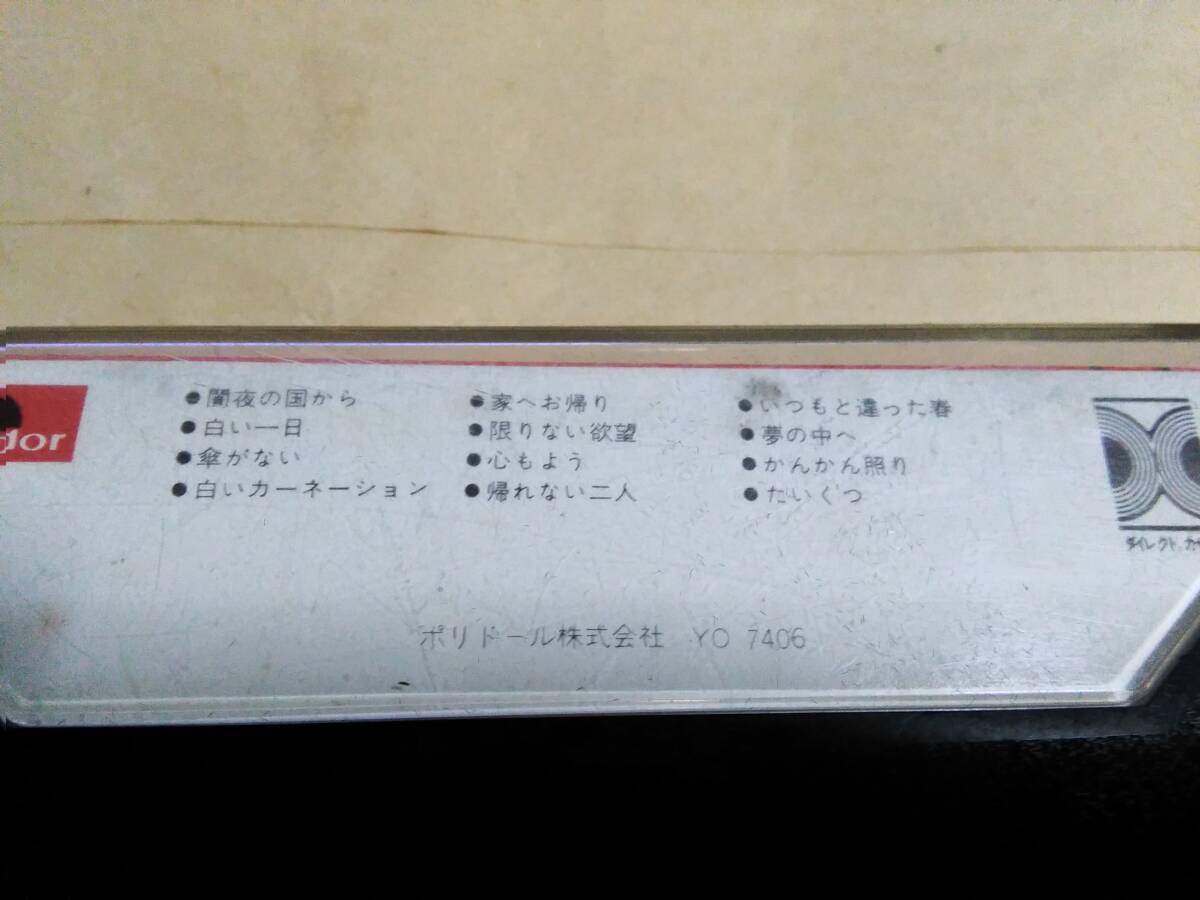 dor
●闇夜の国から
●白い一日
●傘がない
●白いカーネーション
●家へお帰り
●限りない欲望
●心もよう
●帰れない二人
●いつもと違った春
●夢の中へ
●かんかん照り
●たいくつ
ダイレクト・カ
ポリドール株式会社 YO 7406